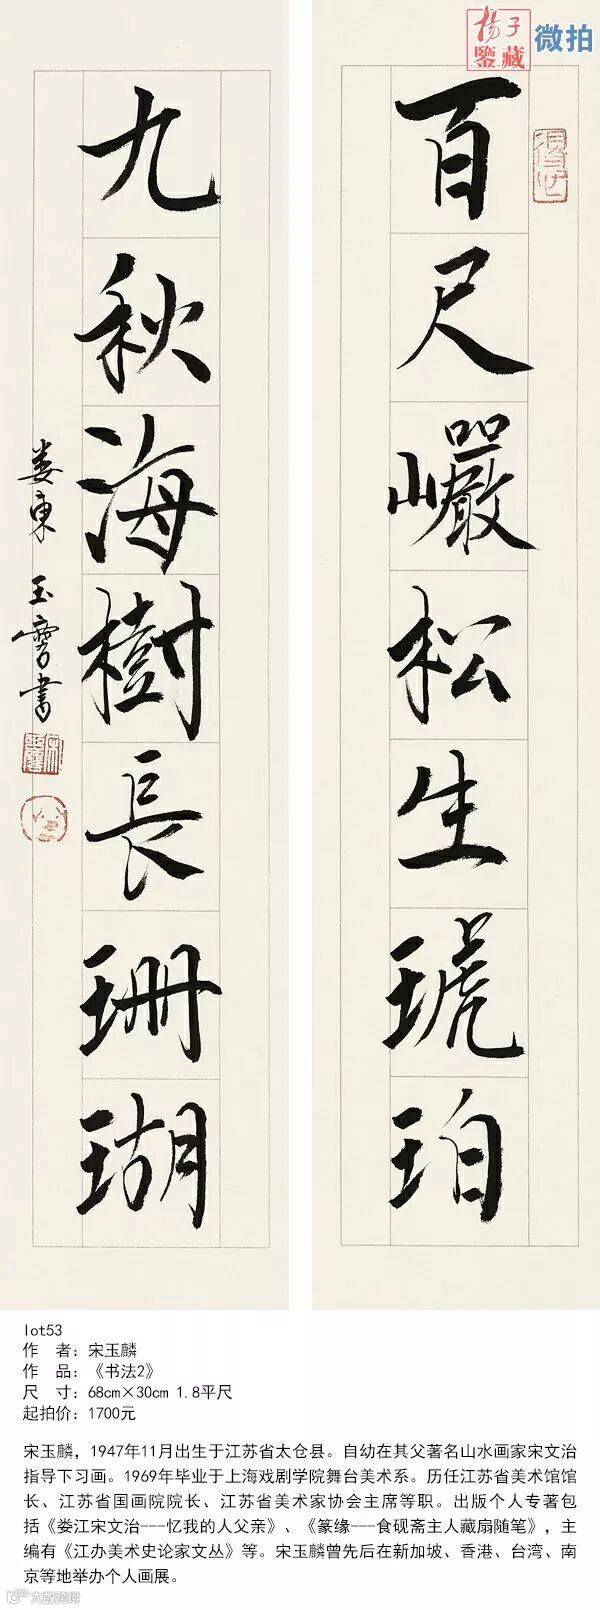 揚子
鑒藏
微拍
百尺巗松生琥珀
九秋海樹長珊瑚
娄東 玉麐書
lot53
作 者：宋玉麟
作 品：《书法2》
尺 寸：68cm×30cm 1.8平尺
起拍价：1700元
宋玉麟，1947年11月出生于江苏省太仓县。自幼在其父著名山水画家宋文治
指导下习画。1969年毕业于上海戏剧学院舞台美术系。历任江苏省美术馆馆
长、江苏省国画院院长、江苏省美术家协会主席等职。出版个人专著包
括《娄江宋文治---忆我的人父亲》、《篆缘---食砚斋主人藏扇随笔》，主
编有《江办美术史论家文丛》等。宋玉麟曾先后在新加坡、香港、台湾、南
京等地举办个人画展。
大数跨境